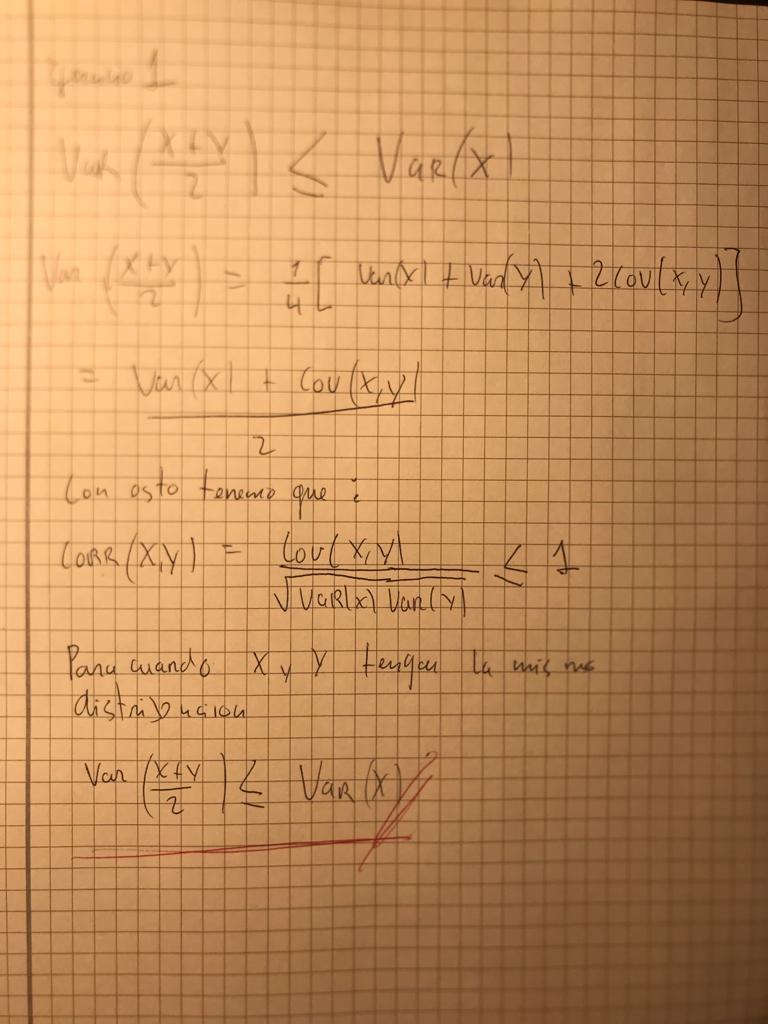 Ejercicio 1
Var (X+Y/2) ≤ Var(X)
Var (X+Y/2) = 1/4 [ Var(X) + Var(Y) + 2Cov(X,Y)]
= Var(X) + Cov(X,Y) / 2
Con osto tenemo que :
CORR(X,Y) = Cov(X,Y) / √VaR(X) Var(Y) ≤ 1
Para cuando X y Y tengan la misma
distribucion
Var (X+Y/2) ≤ VaR(X)